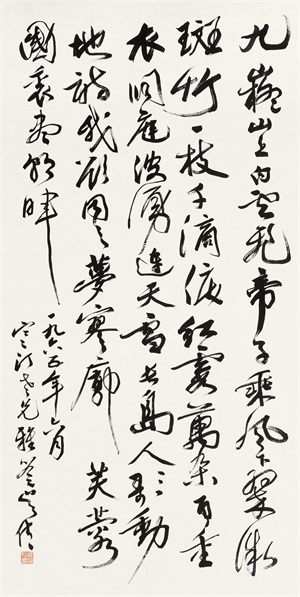 九嶷山上白雲飛帝子乘風下翠微
斑竹一枝千滴淚紅霞萬朵百重
衣洞庭波湧連天雪長島人歌動
地詩我欲因之夢寥廓芙蓉
國裏盡朝暉
一九六五年月
老兄雅鑒